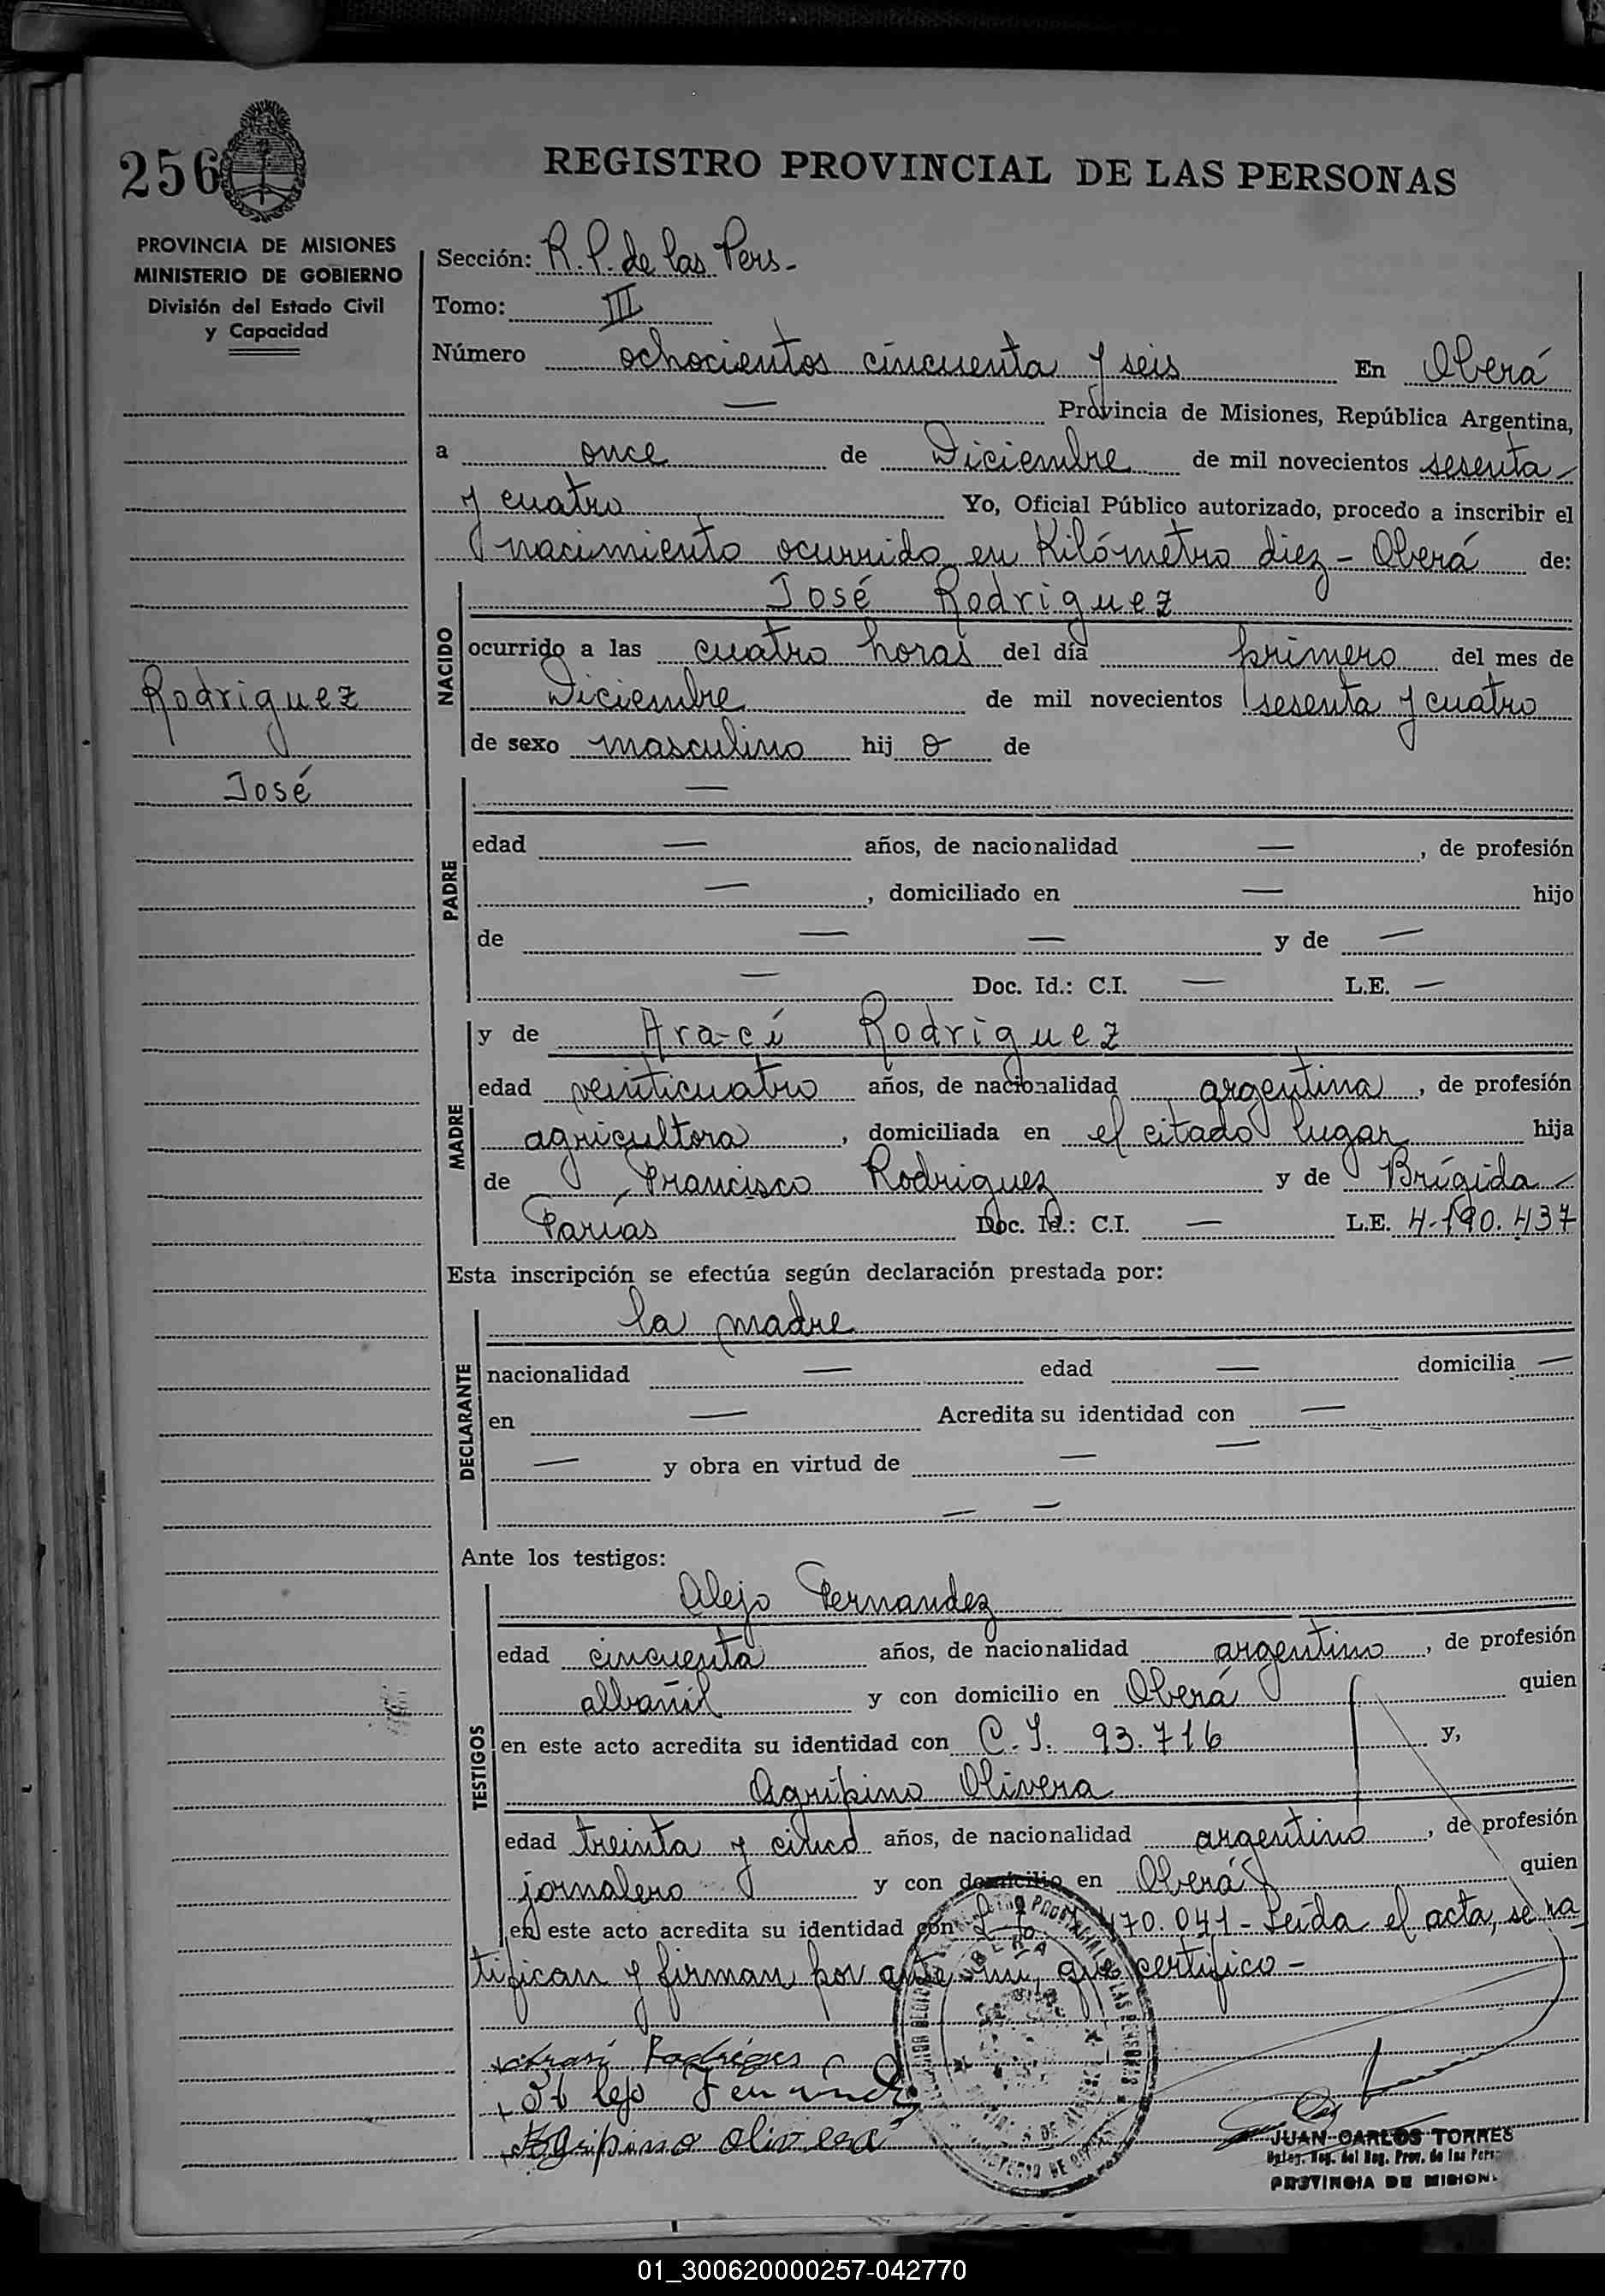 256
REGISTRO PROVINCIAL DE LAS PERSONAS
PROVINCIA DE MISIONES
MINISTERIO DE GOBIERNO
División del Estado Civil
y Capacidad
Rodriguez
José
Sección: R.P. de las Pers-
Tomo: III
Número ochocientos cincuenta y seis En Oberá
— Provincia de Misiones, República Argentina,
a once de Diciembre de mil novecientos sesenta
y cuatro Yo, Oficial Público autorizado, procedo a inscribir el
nacimiento ocurrido en Kilómetro diez - Oberá de:
NACIDO
José Rodriguez
ocurrido a las cuatro horas del día primero del mes de
Diciembre de mil novecientos sesenta y cuatro
de sexo masculino hijo de
PADRE
—
edad — años, de nacionalidad —, de profesión
—, domiciliado en — hijo
de — — y de —
— Doc. Id.: C.I. — L.E. —
MADRE
y de Ara-cí Rodriguez
edad veinticuatro años, de nacionalidad argentina, de profesión
agricultora, domiciliada en el citado lugar hija
de Francisco Rodriguez y de Brígida
Farías Doc. Id.: C.I. — L.E. 4.190.437
Esta inscripción se efectúa según declaración prestada por:
DECLARANTE
la madre
nacionalidad — edad — domicilia —
en — Acredita su identidad con —
— y obra en virtud de — —
— —
Ante los testigos:
TESTIGOS
Alejo Fernandez
edad cincuenta años, de nacionalidad argentino, de profesión
albañil y con domicilio en Oberá quien
en este acto acredita su identidad con C.I. 93.716 y,
Agripino Olivera
edad treinta y cinco años, de nacionalidad argentino, de profesión
jornalero y con domicilio en Oberá quien
en este acto acredita su identidad con 470.041 - Leída el acta, se ra
tifican y firman por ante mí, que certifico -
Rodrigues
Agripino olivera
JUAN CARLOS TORRES
Reg. del Reg. Prov. de las Pers
PROVINCIA DE MISION
01_300620000257-042770